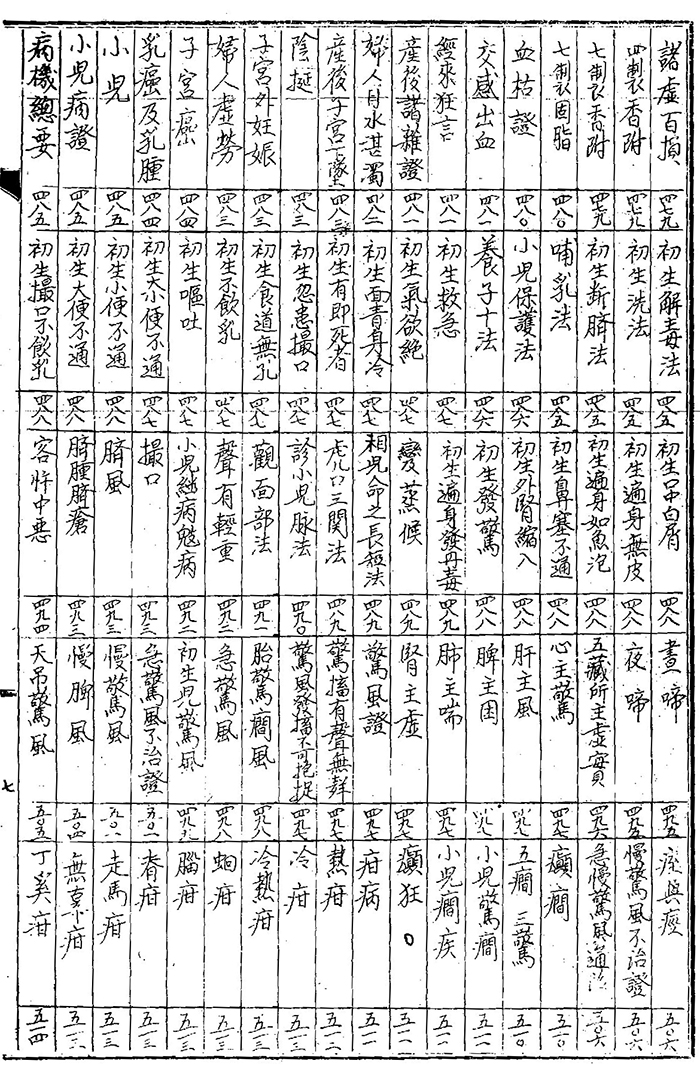 諸虛百損 四七九
四製香附 四七九
七製香附 四七九
七製固脂 四八〇
血枯證 四八〇
交感出血 四八一
經來狂言 四八一
產後諸雜證 四八一
婦人月水湛濁 四八二
產後子宮下墜 四八三
陰挺 四八三
子宮外妊娠 四八三
婦人虛勞 四八三
子宮癌 四八四
乳癌及乳腫 四八四
小兒 四八五
小兒病證 四八五
病機總要 四八五
初生解毒法 四八五
初生洗法 四八五
初生断臍法 四八五
哺乳法 四八五
小兒保護法 四八六
養子十法 四八六
初生救急 四八七
初生氣欲絕 四八七
初生面青身冷 四八七
初生有即死者 四八七
初生忽患撮口 四八七
初生食道無孔 四八七
初生不飲乳 四八七
初生嘔吐 四八七
初生大小便不通 四八七
初生小便不通 四八八
初生大便不通 四八八
初生撮口不飲乳 四八八
初生口中白屑 四八八
初生遍身無皮 四八八
初生遍身如魚泡 四八八
初生鼻塞不通 四八八
初生外腎縮入 四八八
初生發驚 四八八
初生遍身發丹毒 四八九
變蒸候 四八九
相兒命之長短法 四八九
虎口三関法 四八九
診小兒脉法 四九〇
觀面部法 四九一
聲有輕重 四九二
小兒継病魃病 四九二
撮口 四九三
臍風 四九三
臍腫臍瘡 四九三
客忤中悪 四九四
晝啼 四九五
夜啼 四九五
五藏所主虛實 四九六
心主驚 四九七
肝主風 四九七
脾主困 四九七
肺主喘 四九七
腎主虛 四九七
驚風證 四九七
驚搐有聲無聲 四九七
驚風發搐不可抱捉 四九七
胎驚癎風 四九八
急驚風 四九八
初生兒驚風 四九九
急驚風不治證 五〇一
慢驚風 五〇一
慢脾風 五〇四
天吊驚風 五〇五
痓與痙 五〇六
慢驚風不治證 五〇六
急慢驚風通治 五〇六
癲癎 五一〇
五癎 三驚 五一〇
小兒驚癎 五一一
小兒癎疾 五一一
癲狂 五一一
疳病 五一一
熱疳 五一二
冷疳 五一三
冷熱疳 五一三
蛔疳 五一三
腦疳 五一三
脊疳 五一三
走馬疳 五一三
無辜疳 五一三
丁奚疳 五一四
七